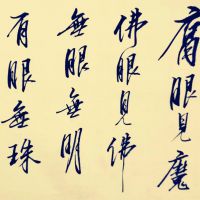 眼見魔
佛眼見佛
無眼無明
有眼無珠